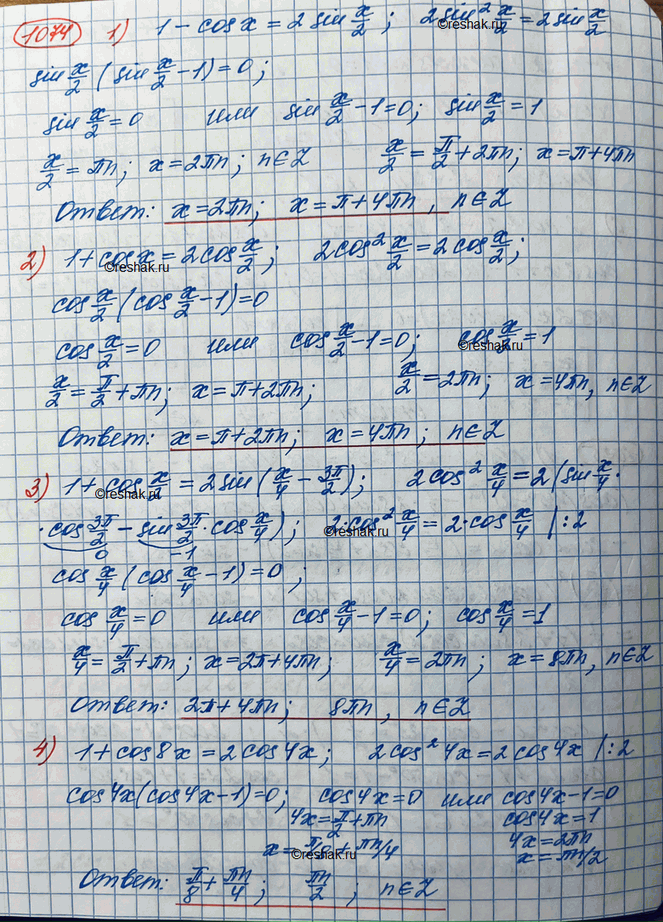 1074 1) 1 - cos x = 2 sin x/2 ; 2 sin² x/2 = 2 sin x/2
©reshak.ru
sin x/2 (sin x/2 - 1) = 0 ;
sin x/2 = 0 или sin x/2 - 1 = 0 ; sin x/2 = 1
x/2 = πn ; x = 2πn ; n ∈ Z x/2 = π/2 + 2πn ; x = π + 4πn
Ответ: x = 2πn ; x = π + 4πn , n ∈ Z
2) 1 + cos x = 2 cos x/2 ; 2 cos² x/2 = 2 cos x/2 ;
©reshak.ru
cos x/2 (cos x/2 - 1) = 0
cos x/2 = 0 или cos x/2 - 1 = 0 ; cos x/2 = 1
©reshak.ru
x/2 = π/2 + πn ; x = π + 2πn ; x/2 = 2πn ; x = 4πn , n ∈ Z
Ответ: x = π + 2πn ; x = 4πn ; n ∈ Z
3) 1 + cos x/2 = 2 sin (x/4 - 3π/2) ; 2 cos² x/4 = 2 (sin x/4 ·
©reshak.ru
· cos 3π/2 - sin 3π/2 · cos x/4) ; 2 · cos² x/4 = 2 · cos x/4 | : 2
©reshak.ru
0 -1
cos x/4 (cos x/4 - 1) = 0 ;
cos x/4 = 0 или cos x/4 - 1 = 0 ; cos x/4 = 1
x/4 = π/2 + πn ; x = 2π + 4πn ; x/4 = 2πn ; x = 8πn , n ∈ Z
Ответ: 2π + 4πn ; 8πn , n ∈ Z
4) 1 + cos 8x = 2 cos 4x ; 2 cos² 4x = 2 cos 4x | : 2
cos 4x (cos 4x - 1) = 0 ; cos 4x = 0 или cos 4x - 1 = 0
4x = π/2 + πn cos 4x = 1
x = π/8 + πn/4 4x = 2πn
©reshak.ru x = πn/2
Ответ: π/8 + πn/4 ; πn/2 ; n ∈ Z